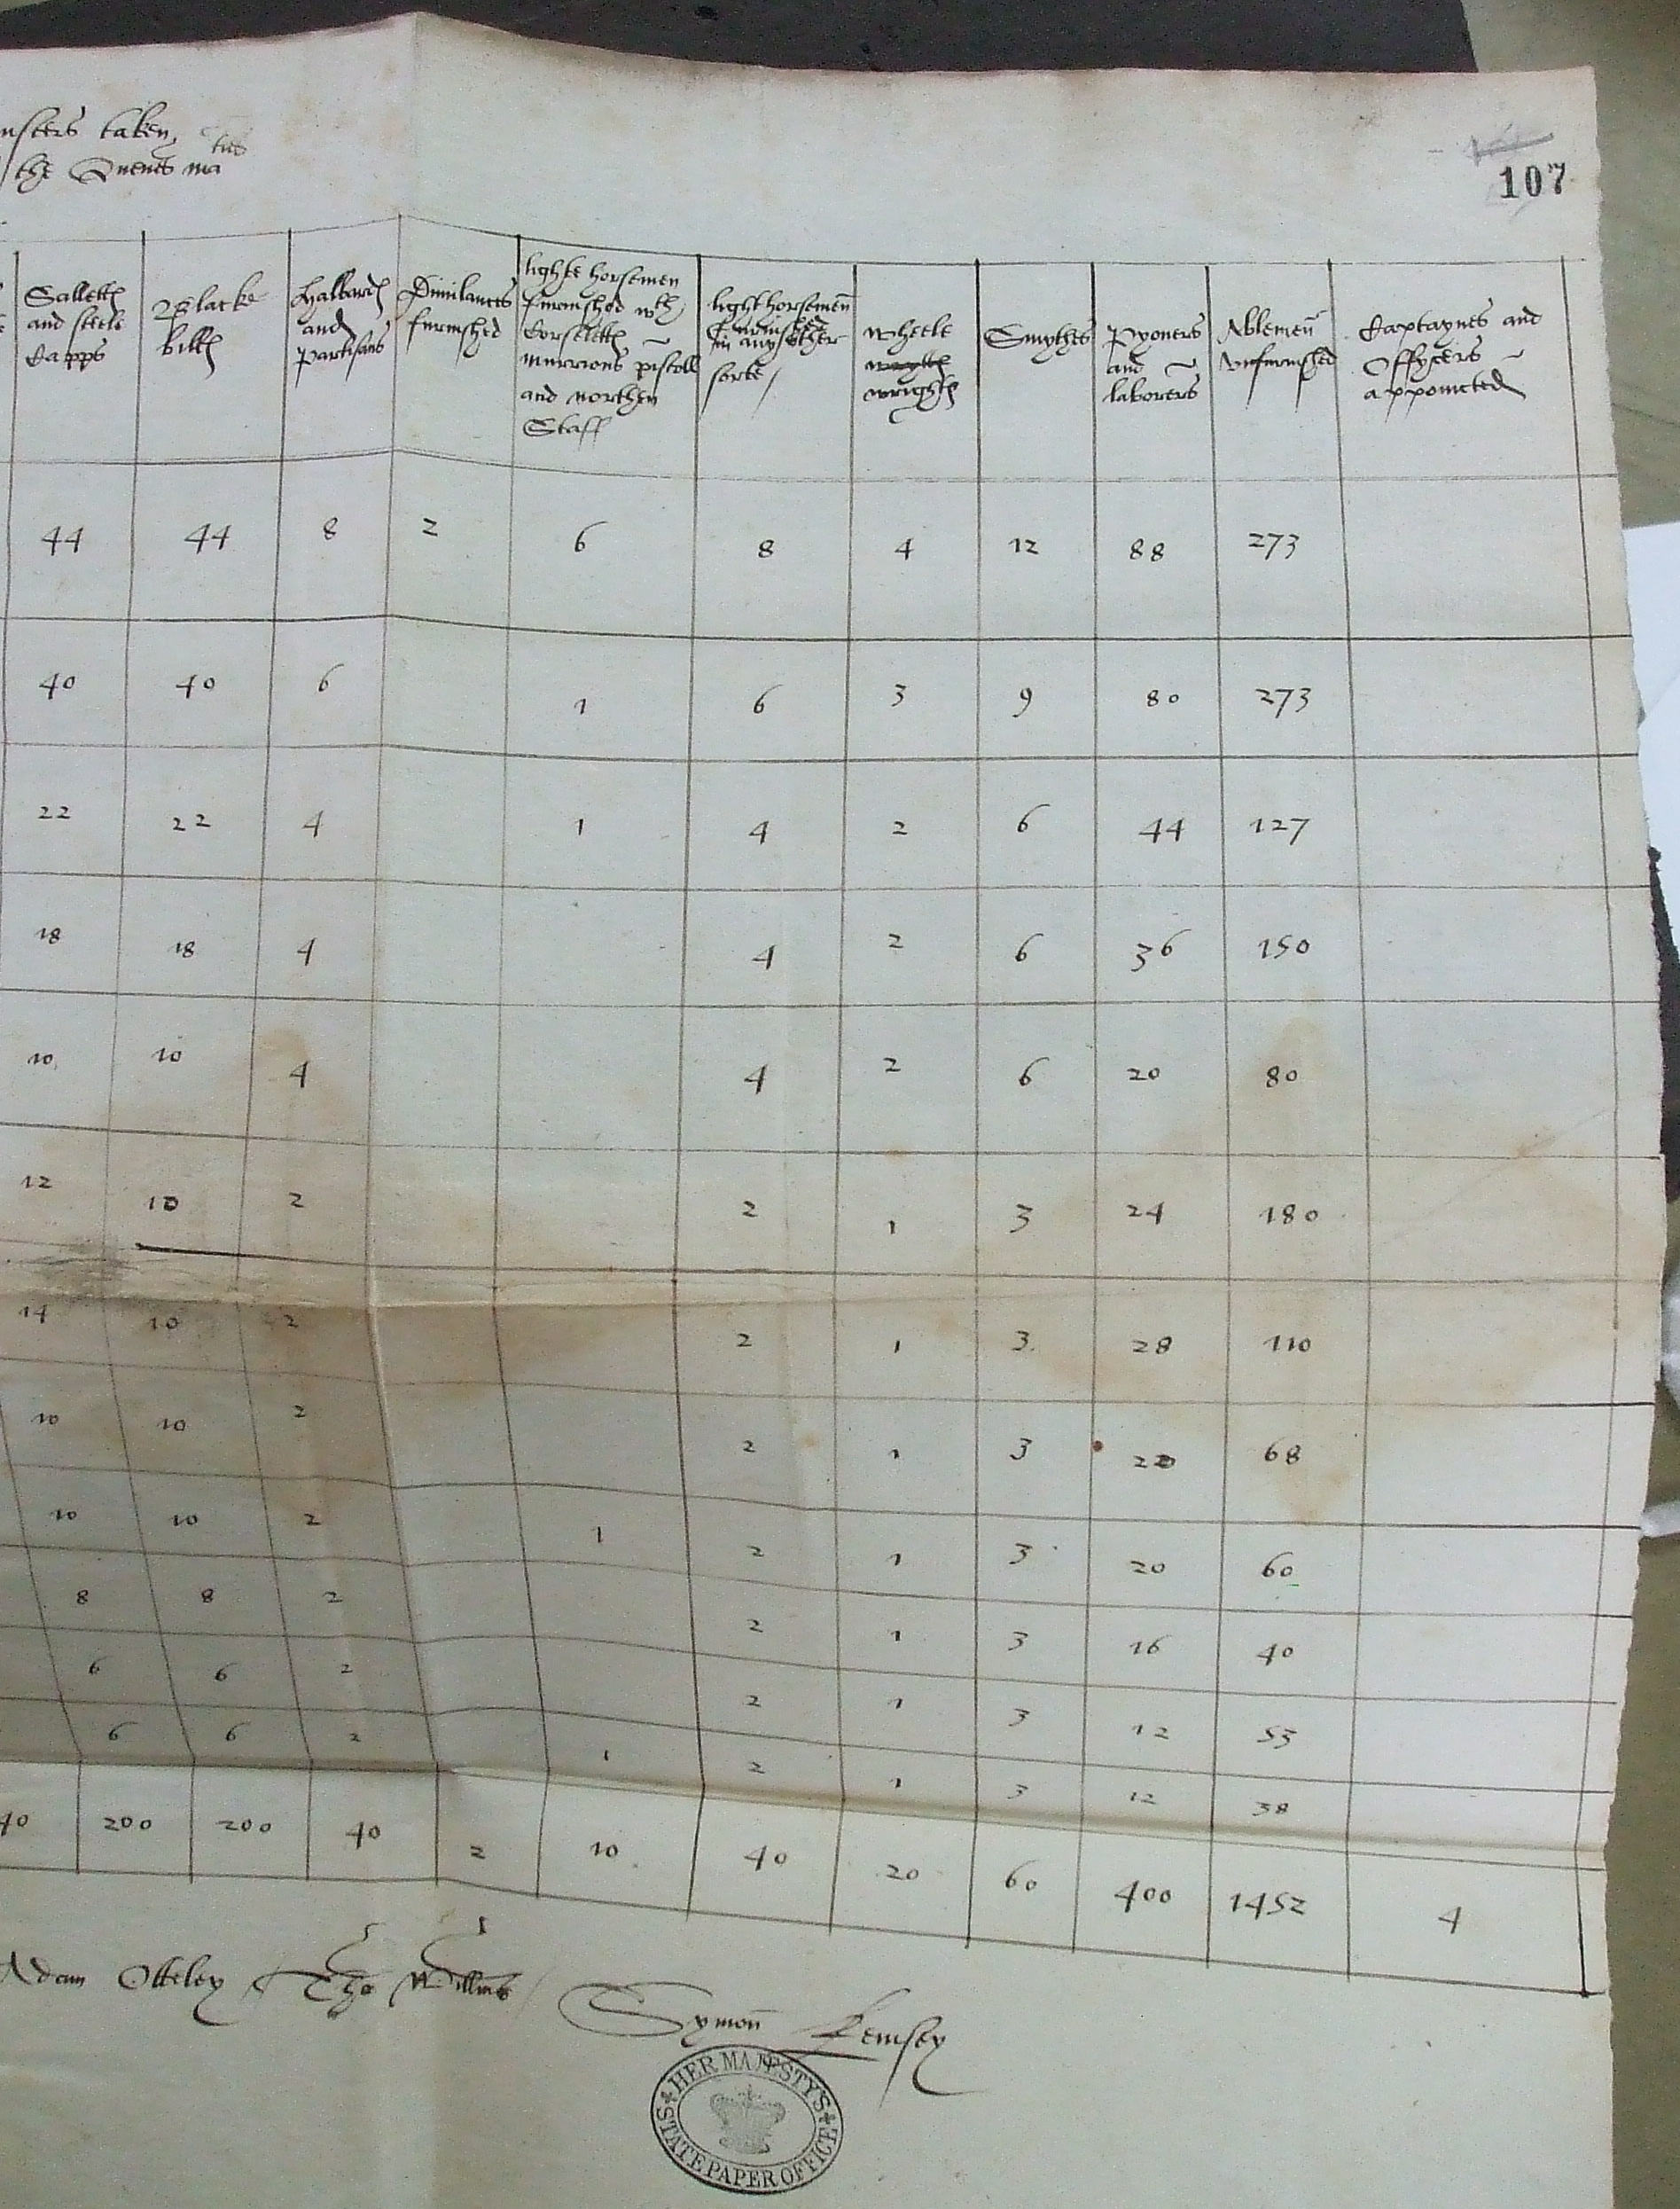 musters taken
the Quenes ma ties
107
Salletts and steele Capps
Blacke bills
Halbards and Partisans
Dimilances furnished
lighte horsemen furnished wth Corseletts murrions pistoll and northen Staff
light horsemen furnished in any other sorte
wheele wrights
Smythes
Pyoners and laborers
Ablemen unfurnished
Captaynes and Offycers appoincted
44 44 8 2 6 8 4 12 88 273
40 40 6 1 6 3 9 80 273
22 22 4 1 4 2 6 44 127
18 18 4 4 2 6 36 150
10 10 4 4 2 6 20 80
12 10 2 2 1 3 24 180
14 10 2 2 1 3 28 110
10 10 2 2 1 3 20 68
10 10 2 1 2 1 3 20 60
8 8 2 2 1 3 16 40
6 6 2 2 1 3 12 53
6 6 2 1 2 1 3 12 38
40 200 200 40 2 10 40 20 60 400 1452 4
Adam Otteley Tho Willms
Symon Kemsey
HER MAJESTY'S
STATE PAPER OFFICE